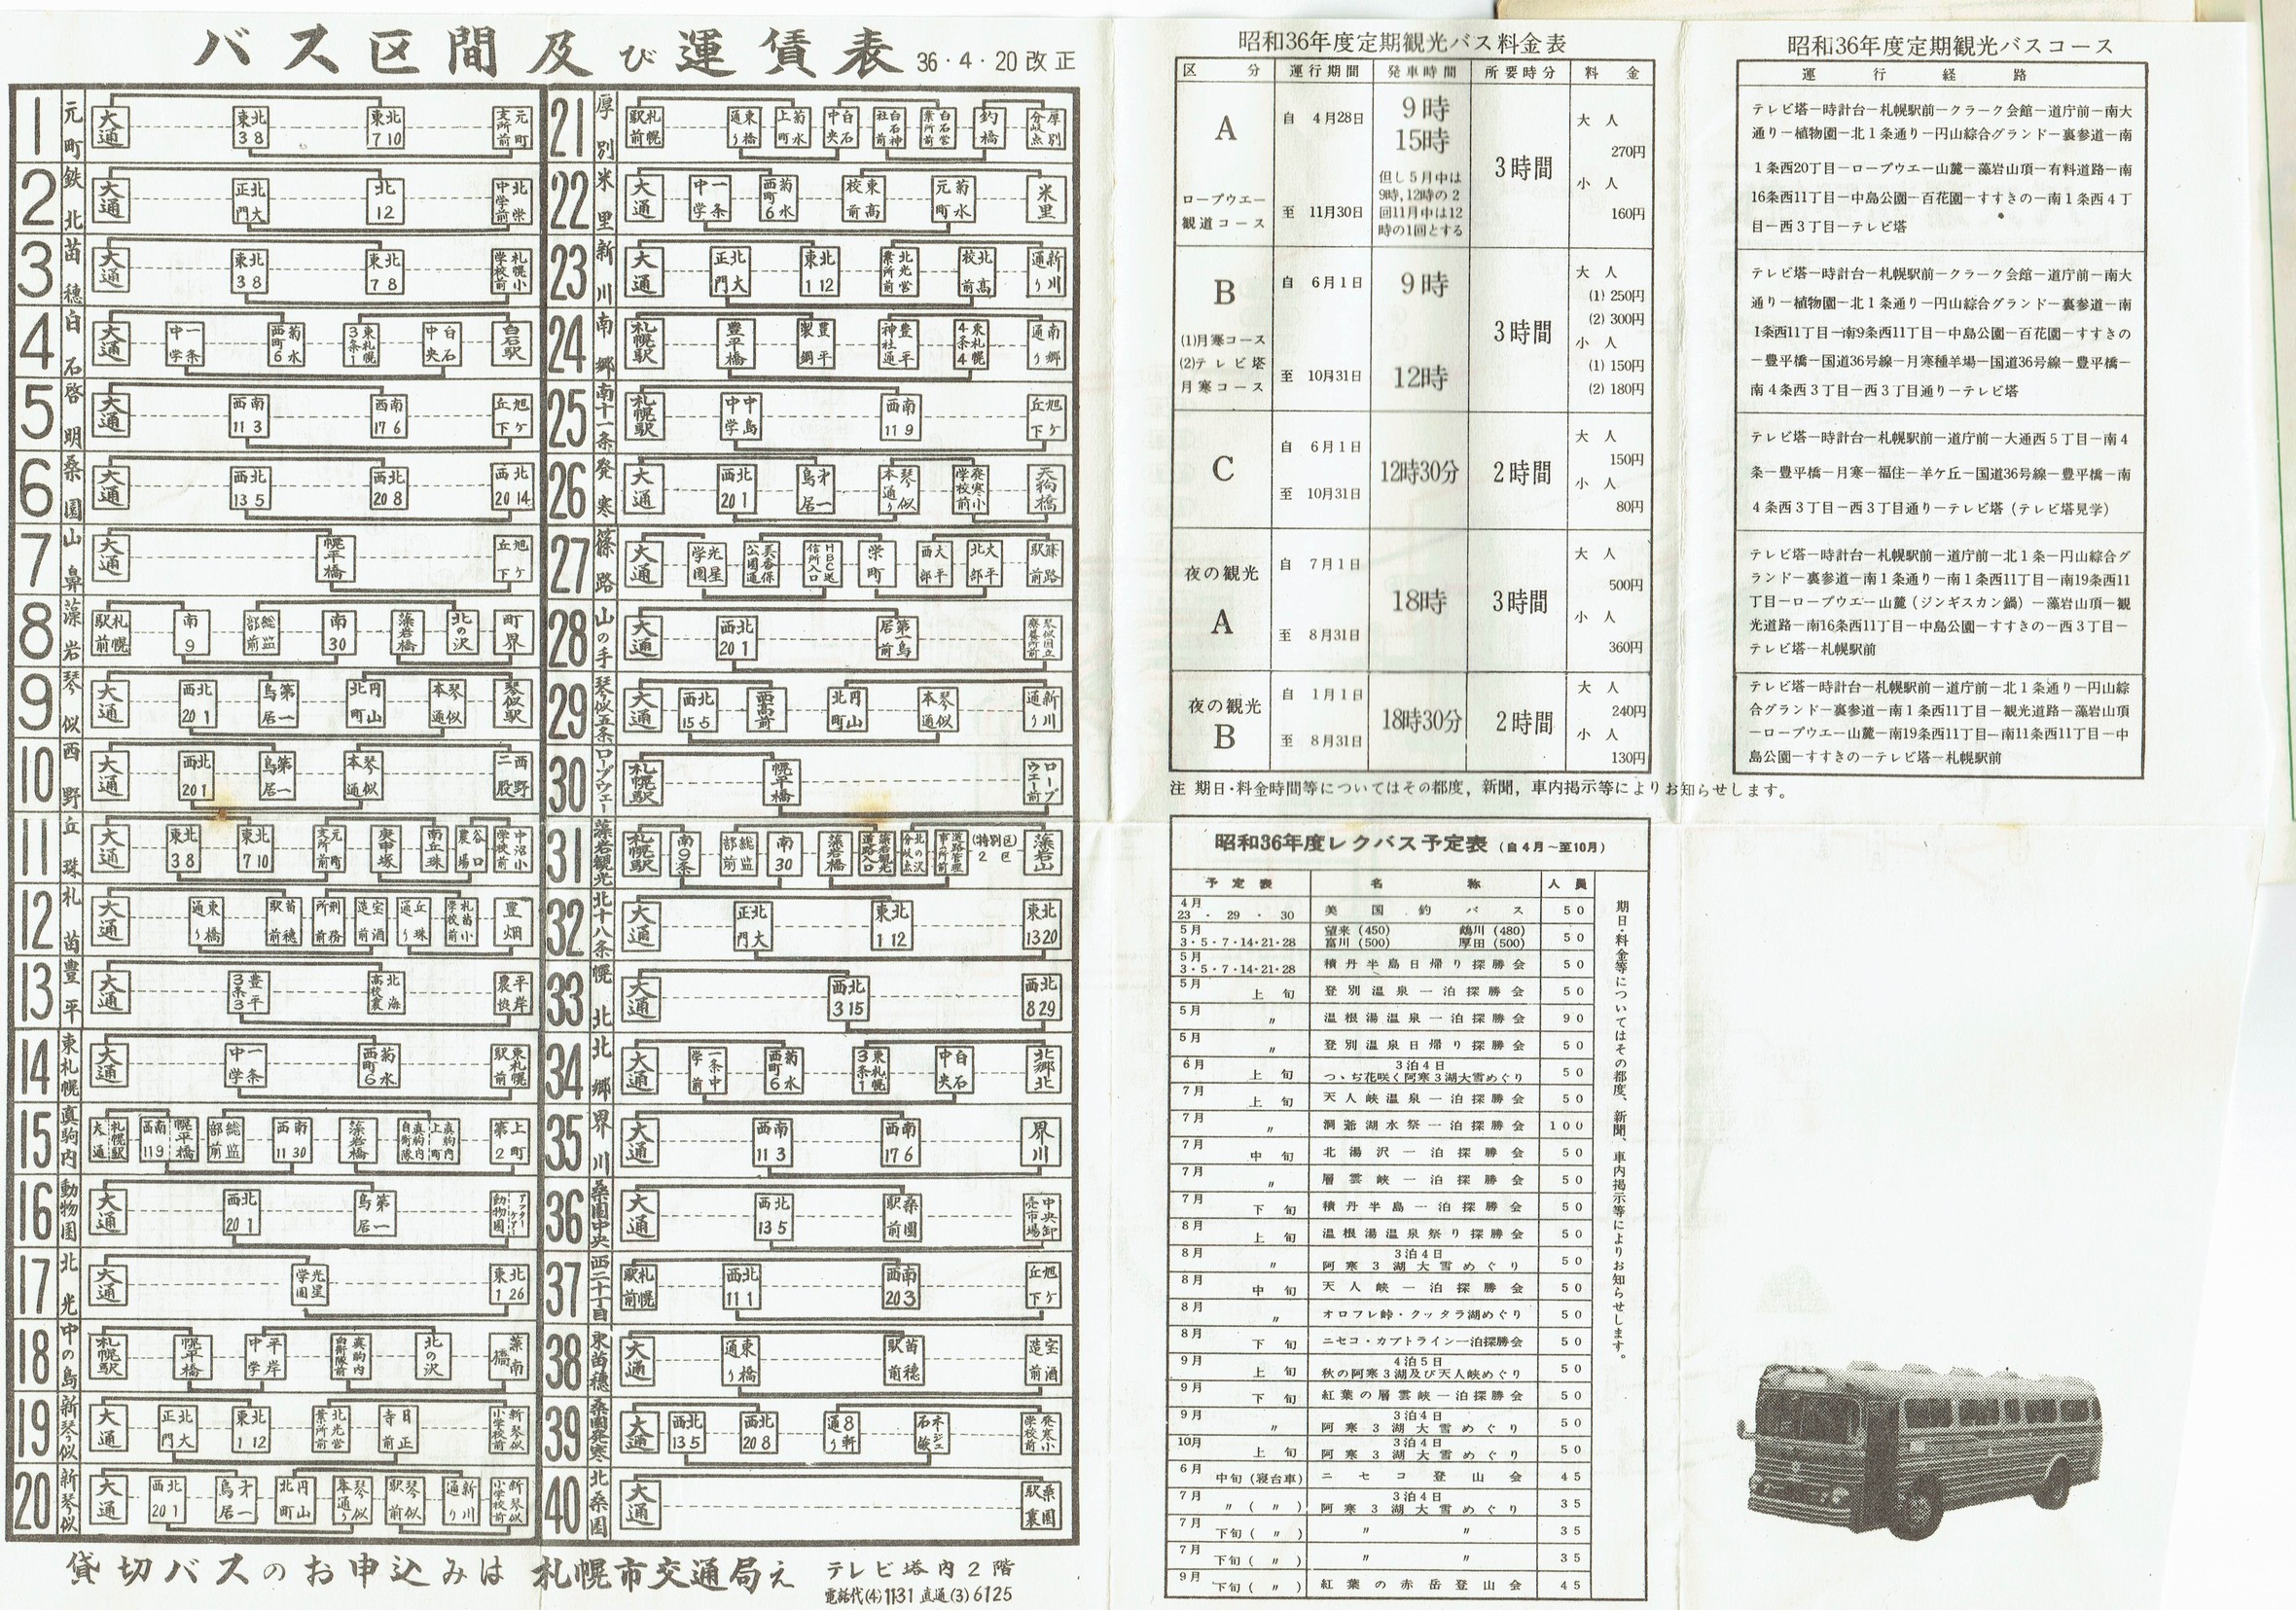 バス区間及び運賃表 36・4・20改正
1 元町 大通 東北38 東北710 元町支所前
2 鉄北 大通 北大正門 北12 北栄中学前
3 苗穂 大通 東北38 東北78 札幌小学校前
4 白石 大通 一条中学 菊水西町6 東札幌3条1 白石中央 白石駅
5 啓明 大通 西南113 西南176 旭ケ丘下
6 桑園 大通 西北135 西北208 西北2014
7 山鼻 大通 幌平橋 旭ケ丘下
8 藻岩 札幌駅前 南9 総監部前 南30 藻岩橋 北の沢 町界
9 琴似 大通 西北201 第一鳥居 円山北町 琴似本通 琴似駅
10 西野 大通 西北201 第一鳥居 琴似本通 西野二股
11 丘珠 大通 東北38 東北710 元町支所前 南丘珠 谷口農場 中沼小学校前
12 札苗 大通 東橋通り 苗穂駅前 刑務所前 宝酒造前 丘珠通り 札苗小学校前 豊畑
13 豊平 大通 豊平3条3 北海高校裏 平岸農協
14 東札幌 大通 一条中学 菊水西町6 東札幌駅前
15 真駒内 大通 札幌駅 西南119 幌平橋 総監部前 西南1130 藻岩橋 真駒内自衛隊 真駒内上町 上町第2
16 動物園 大通 西北201 第一鳥居 動物園 アフターケアー
17 北光 大通 光星学園 東北126
18 中の島 札幌駅 幌平橋 平岸中学 真駒内自衛隊前 北の沢 藻南橋
19 新琴似 大通 北大正門 東北112 北光営業所前 日正寺前 新琴似小学校前
20 新琴似 大通 西北201 才一鳥居 円山北町 琴似本通り 琴似駅前 新川通り 新琴似小学校前
21 厚別 札幌駅前 東橋通り 菊水上町 白石中央 白石神社前 白石営業所前 釣橋 厚別分岐点
22 米里 大通 一条中学 菊水西町6 東高校前 菊水元町 米里
23 新川 大通 北大正門 東北112 北光営業所前 北高校前 新川通り
24 南郷 札幌駅 豊平橋 豊平製鋼 豊平神社通 東札幌4条4 南郷通り
25 南十一条 札幌駅 中島中学 西南119 旭ケ丘下
26 発寒 大通 西北201 才一鳥居 琴似本通り 発寒小学校前 天狗橋
27 篠路 大通 光星学園 美香保公園通 HBC送信所入口 栄町 大平西部 大平北部 篠路駅前
28 山の手 大通 西北201 第一鳥居前 琴似国立療養所前
29 琴似五条 大通 西北155 西高前 円山北町 琴似本通 新川通り
30 ロープウェー 札幌駅 幌平橋 ロープウエー前
31 藻岩観光 札幌駅 南9条 総監部前 南30 藻岩橋 藻岩観光道路入口 北の沢分岐点 道路管理事ム所前 (特別区)2区 藻岩山
32 北十八条 大通 北大正門 東北112 東北1320
33 幌北 大通 西北315 西北829
34 北郷 大通 一条中学前 菊水西町6 東札幌3条1 白石中央 北郷北
35 界川 大通 西南113 西南176 界川
36 桑園中央 大通 西北135 桑園駅前 中央卸売市場
37 西二十丁目 札幌駅前 西北111 西南203 旭ケ丘下
38 東苗穂 大通 東橋通り 苗穂駅前 宝酒造前
39 桑園発寒 大通 西北135 西北208 8軒通り 発寒小学校前
40 北桑園 大通 桑園駅裏
貸切バスのお申込みは 札幌市交通局え テレビ塔内2階
電話代(4)1131 直通(3)6125
昭和36年度定期観光バス料金表
区分 運行期間 発車時間 所要時分 料金
A ロープウエー観道コース 自 4月28日 至 11月30日 9時 15時 但し5月中は9時,12時の2回11月中は12時の1回とする 3時間 大人 270円 小人 160円
B (1)月寒コース (2)テレビ塔月寒コース 自 6月1日 至 10月31日 9時 12時 3時間 大人 (1) 250円 (2) 300円 小人 (1) 150円 (2) 180円
C 自 6月1日 至 10月31日 12時30分 2時間 大人 150円 小人 80円
夜の観光 A 自 7月1日 至 8月31日 18時 3時間 大人 500円 小人 360円
夜の観光 B 自 1月1日 至 8月31日 18時30分 2時間 大人 240円 小人 130円
注 期日・料金時間等についてはその都度,新聞,車内掲示等によりお知らせします。
昭和36年度定期観光バスコース
運行経路
テレビ塔ー時計台ー札幌駅前ークラーク会館ー道庁前ー南大
通りー植物園ー北1条通りー円山綜合グランドー裏参道ー南
1条西20丁目ーロープウエー山麓ー藻岩山頂ー有料道路ー南
16条西11丁目ー中島公園ー百花園ーすすきのー南1条西4丁
目ー西3丁目ーテレビ塔
テレビ塔ー時計台ー札幌駅前ークラーク会館ー道庁前ー南大
通りー植物園ー北1条通りー円山綜合グランドー裏参道ー南
1条西11丁目ー南9条西11丁目ー中島公園ー百花園ーすすきの
ー豊平橋ー国道36号線ー月寒種羊場ー国道36号線ー豊平橋ー
南4条西3丁目ー西3丁目通りーテレビ塔
テレビ塔ー時計台ー札幌駅前ー道庁前ー大通西5丁目ー南4
条ー豊平橋ー月寒ー福住ー羊ケ丘ー国道36号線ー豊平橋ー南
4条西3丁目ー西3丁目通りーテレビ塔(テレビ塔見学)
テレビ塔ー時計台ー札幌駅前ー道庁前ー北1条ー円山綜合グ
ランドー裏参道ー南1条通りー南1条西11丁目ー南19条西11
丁目ーロープウエー山麓(ジンギスカン鍋)ー藻岩山頂ー観
光道路ー南16条西11丁目ー中島公園ーすすきのー西3丁目ー
テレビ塔ー札幌駅前
テレビ塔ー時計台ー札幌駅前ー道庁前ー北1条通りー円山綜
合グランドー裏参道ー南1条西11丁目ー観光道路ー藻岩山頂
ーロープウエー山麓ー南19条西11丁目ー南11条西11丁目ー中
島公園ーすすきのーテレビ塔ー札幌駅前
昭和36年度レクバス予定表 (自4月〜至10月)
予定表 名称 人員
4月 23・29・30 美国釣バス 50
5月 3・5・7・14・21・28 望来(450) 鵡川(480) 富川(500) 厚田(500) 50
5月 3・5・7・14・21・28 積丹半島日帰り探勝会 50
5月 上旬 登別温泉一泊探勝会 50
5月 〃 温根湯温泉一泊探勝会 90
5月 〃 登別温泉日帰り探勝会 50
6月 上旬 3泊4日 つゝぢ花咲く阿寒3湖大雪めぐり 50
7月 上旬 天人峡温泉一泊探勝会 50
7月 〃 洞爺湖水祭一泊探勝会 100
7月 中旬 北湯沢一泊探勝会 50
7月 〃 層雲峡一泊探勝会 50
7月 下旬 積丹半島一泊探勝会 50
8月 上旬 温根湯温泉祭り探勝会 50
8月 〃 3泊4日 阿寒3湖大雪めぐり 50
8月 中旬 天人峡一泊探勝会 50
8月 〃 オロフレ峠・クッタラ湖めぐり 50
8月 下旬 ニセコ・カブトライン一泊探勝会 50
9月 上旬 4泊5日 秋の阿寒3湖及び天人峡めぐり 50
9月 下旬 紅葉の層雲峡一泊探勝会 50
9月 〃 3泊4日 阿寒3湖大雪めぐり 50
10月 上旬 3泊4日 阿寒3湖大雪めぐり 50
6月 中旬(寝台車) ニセコ登山会 45
7月 〃(〃) 3泊4日 阿寒3湖大雪めぐり 35
7月 下旬(〃) 〃 〃 35
7月 下旬(〃) 〃 〃 35
9月 下旬(〃) 紅葉の赤岳登山会 45
期日・料金等についてはその都度、新聞、車内掲示等によりお知らせします。